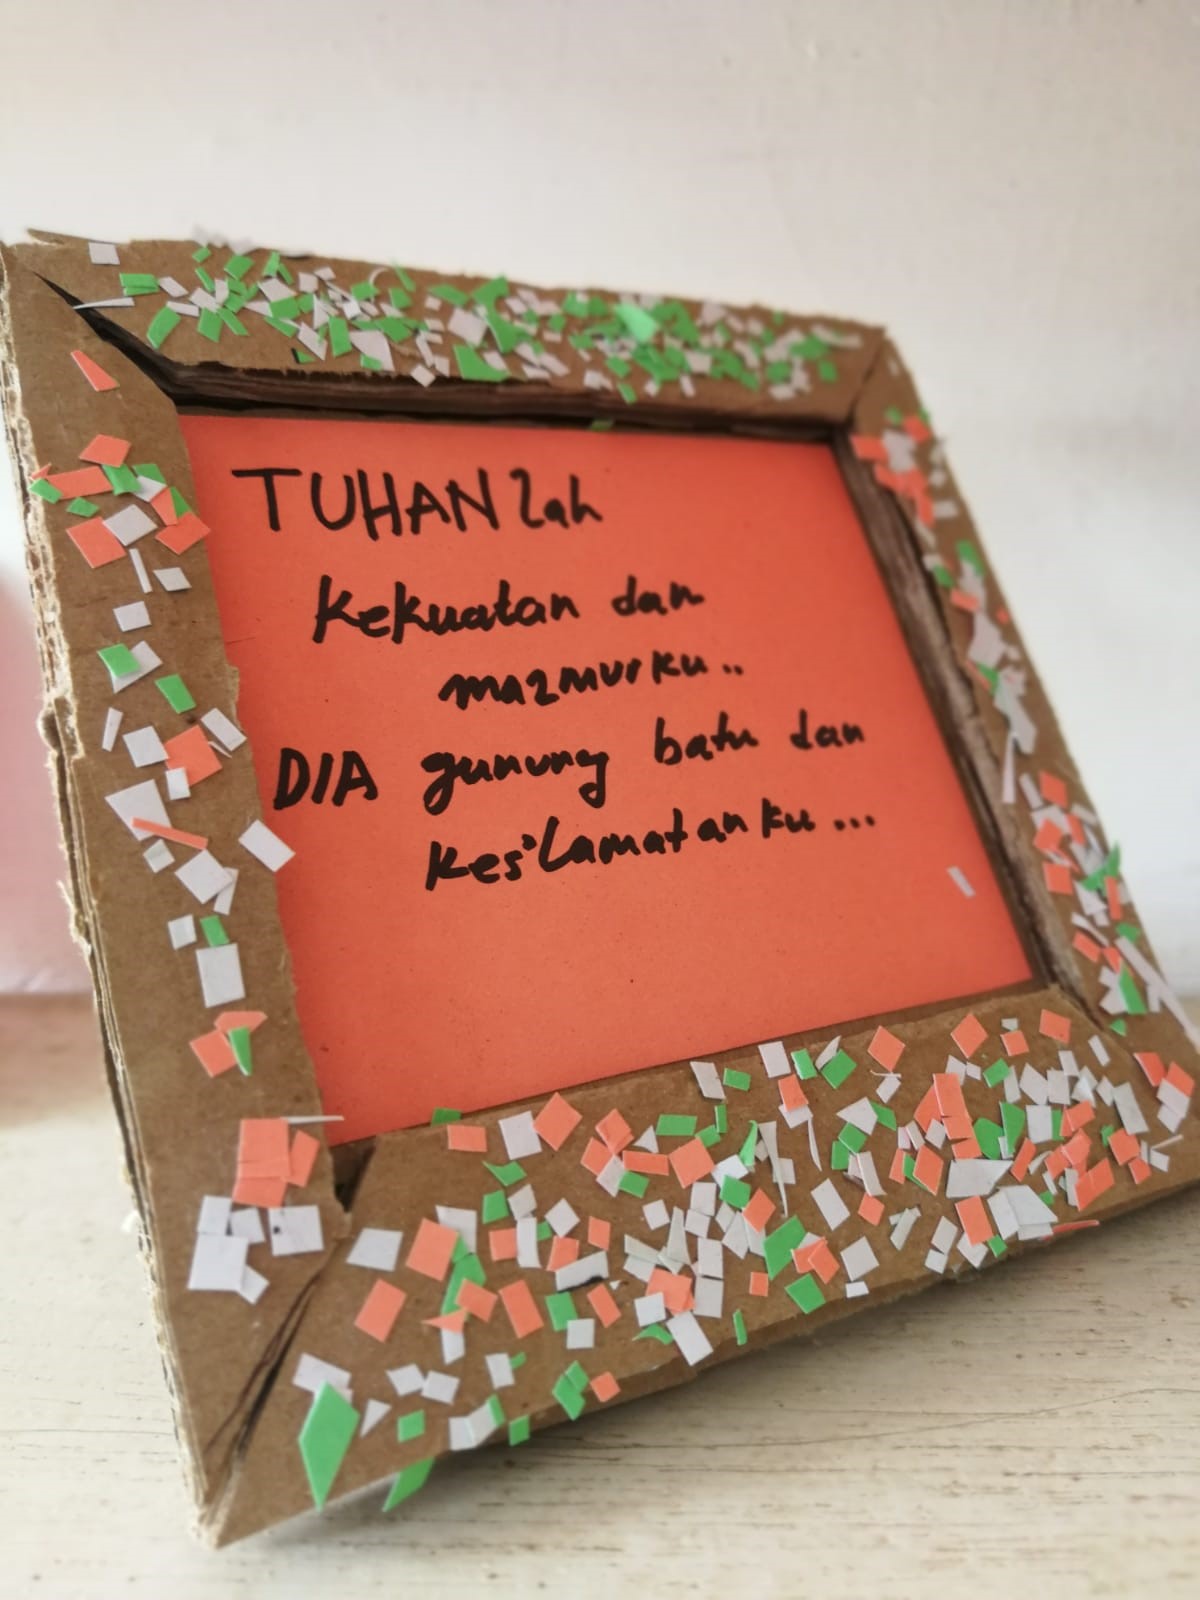 TUHANlah
kekuatan dan
mazmurku..
DIA gunung batu dan
kes'lamatanku...